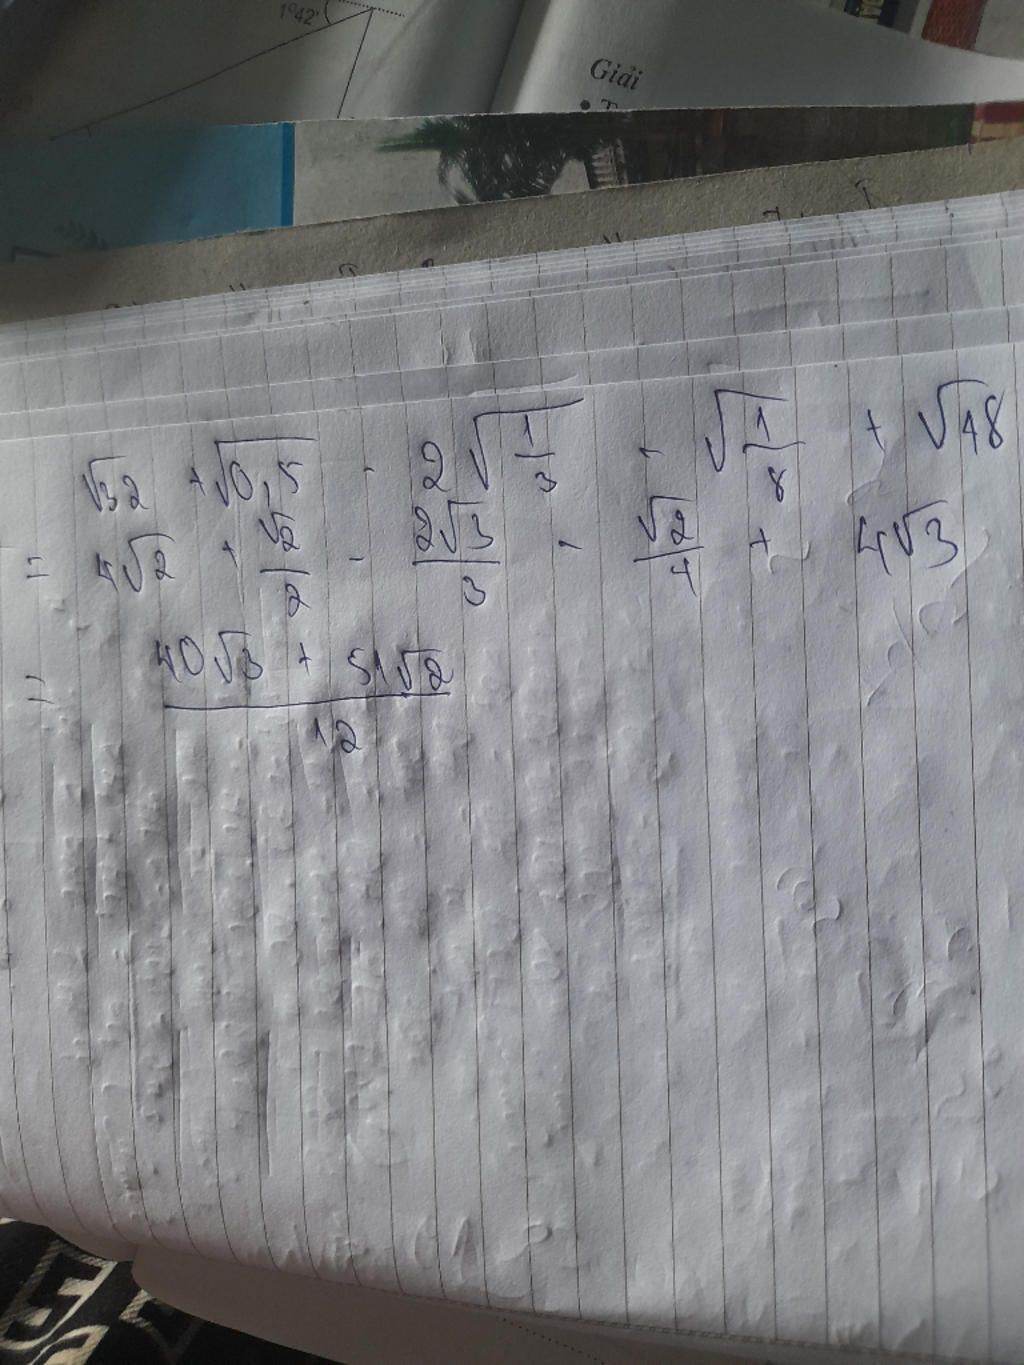 1°42'
Giải
√32 + √0,5 - 2√(1/3) - √(1/8) + √48
= 4√2 + √2/2 - 2√3/3 - √2/4 + 4√3
= (40√3 + 51√2)/12